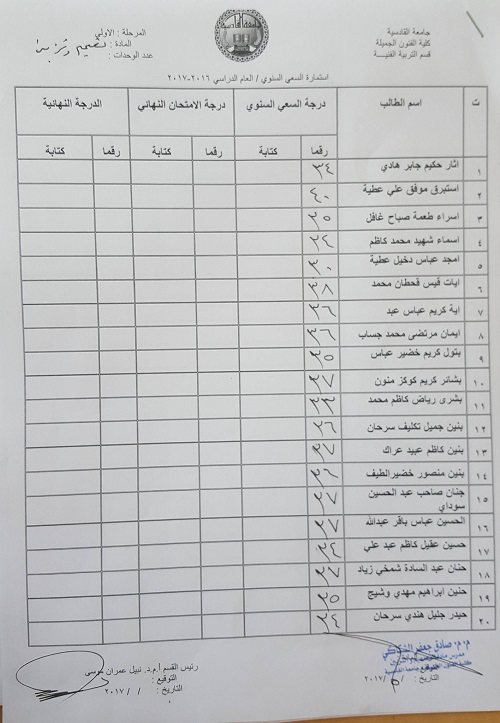 جامعة القادسية
كلية الفنون الجميلة
قسم التربية الفنية
المرحلة : الاولى
المادة : تصميم
عدد الوحدات :
استمارة السعي السنوي / العام الدراسي ٢٠١٦-٢٠١٧
ت اسم الطالب درجة السعي السنوي درجة الامتحان النهائي الدرجة النهائية
رقما كتابة رقما كتابة رقما كتابة
١ اثار حكيم جابر هادي ٣٤
٢ استبرق موفق علي عطية ٤٠
٣ اسراء طعمة صباح غافل ٣٥
٤ اسماء شهيد محمد كاظم ٣٤
٥ امجد عباس دخيل عطية ٣٠
٦ ايات قيس قحطان محمد ٣٨
٧ اية كريم عباس عبد ٣٦
٨ ايمان مرتضى محمد جساب ٣٦
٩ بتول كريم خضير عباس ٣٥
١٠ بشائر كريم كوكز منون ٣٧
١١ بشرى رياض كاظم محمد ٣٣
١٢ بنين جميل تكليف سرحان ٣٦
١٣ بنين كاظم عبيد عراك ٣٧
١٤ بنين منصور خضيرالطيف ٣٦
١٥ جنان صاحب عبد الحسين سوداي ٣٧
١٦ الحسين عباس باقر عبدالله ٣٧
١٧ حسين عقيل كاظم عبد علي ٣٤
١٨ حنان عبد السادة شمخي زياد ٣٧
١٩ حنين ابراهيم مهدي وشيح ٣٥
٢٠ حيدر جليل هندي سرحان ٣٤
م.م. صادق جعفر
التوقيع :
التاريخ : / / ٢٠١٧
رئيس القسم أ.م.د. نبيل عمران موسى
التوقيع :
التاريخ : / / ٢٠١٧